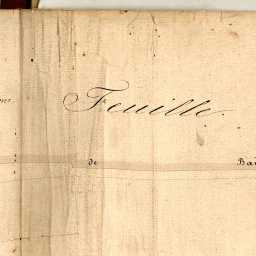 Feuille.
de